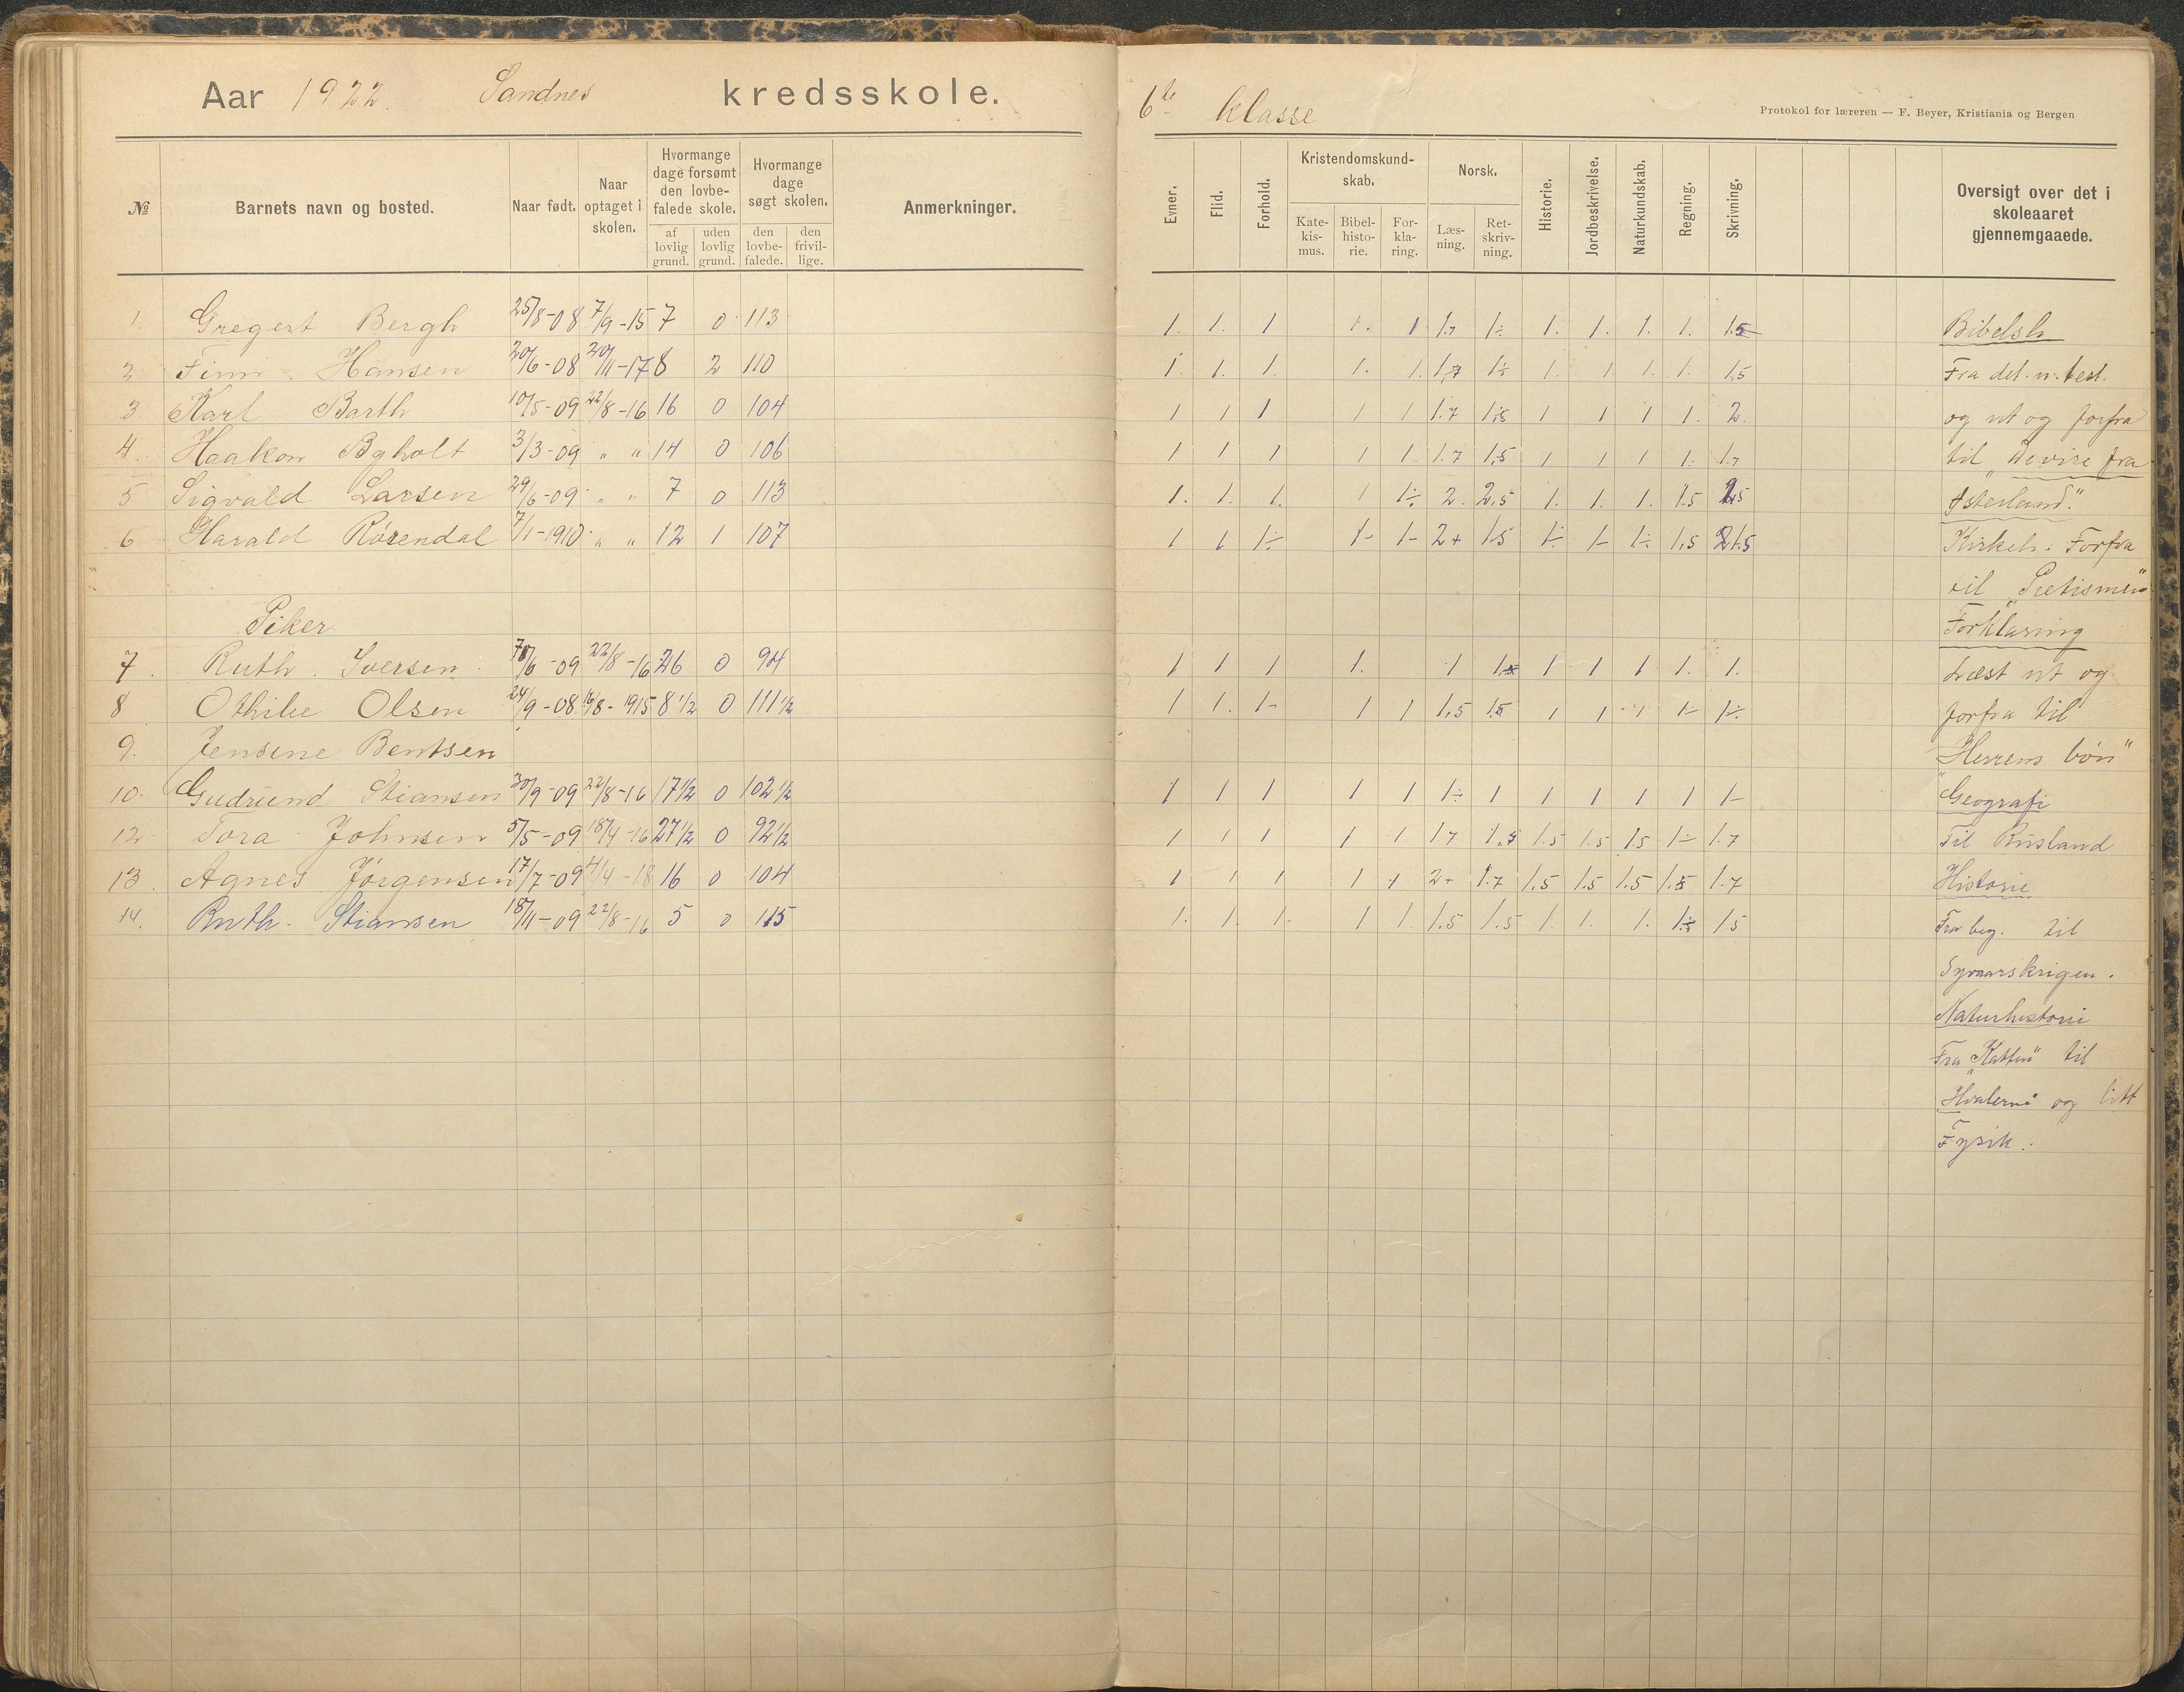 Aar 1922. Sandnes kredsskole.
№
Barnets navn og bosted.
Naar født.
Naar optaget i skolen.
Hvormange dage forsømt den lovbefalede skole.
af lovlig grund.
uden lovlig grund.
Hvormange dage søgt skolen.
den lovbefalede.
den frivillige.
Anmerkninger.
1. Gregert Bergh 25/8-08 7/9-15 7 0 113
2 Finn Hansen 20/6-08 20/11-17 8 2 110
3 Karl Barth 10/5-09 22/8-16 16 0 104
4 Haakon Byholt 3/3-09 " " 14 0 106
5 Sigvald Larsen 29/6-09 " " 7 0 113
6 Harald Rørendal 7/1-1910 " " 12 1 107
Piker
7. Ruth Iversen /6-09 22/8-16 26 0 94
8 Othilie Olsen 24/9-08 16/8-1915 8 1/2 0 111 1/2
9. Jensine Bentsen
10. Gudrund Stiansen 30/9-09 22/8-16 17 1/2 0 102 1/2
12 Tora Johnsen 5/5-09 18/4-16 27 1/2 0 92 1/2
13. Agnes Jørgensen 17/7-09 4/4-18 16 0 104
14. Ruth Stiansen 18/11-09 22/8-16 5 0 115
6te klasse
Protokol for læreren — F. Beyer, Kristiania og Bergen
Evner.
Flid.
Forhold.
Kristendomskundskab.
Katekismus.
Bibelhistorie.
Forklaring.
Norsk.
Læsning.
Retskrivning.
Historie.
Jordbeskrivelse.
Naturkundskab.
Regning.
Skrivning.
Oversigt over det i skoleaaret gjennemgaaede.
1. 1. 1 1. 1 1.7 1÷ 1. 1. 1. 1. 1.5
1. 1. 1. 1. 1. 1,7 1÷ 1. 1. 1. 1. 1,5
1 1 1 1 1 1.7 1.5 1 1 1 1. 2.
1 1 1 1 1 1.7 1,5 1 1 1 1. 1.7
1. 1. 1. 1 1÷ 2. 2,5 1. 1. 1. 1.5
1 1 1÷ 1- 1- 2+ 1.5 1÷ 1- 1÷ 1,5
1 1 1 1. 1 1 1 1 1. 1.
1 1. 1- 1 1 1,5 1.5 1 1 1 1- 1÷
1 1 1 1 1 1÷ 1 1 1 1 1 1-
1 1 1 1 1 1.7 1.7 1.5 1.5 1.5 1- 1.7
1 1 1 1 1 2- 1.7 1.5 1.5 1.5 1.5 1.7
1. 1. 1. 1 1 1.5 1.5 1. 1. 1. 1.5
Bibelsh
Fra det. n. test.
og ut og forfra
til "De vise fra
Østerland".
Kirkeh. Forfra
til "Pietismen"
Forklaring
Læst ut og
forfra til
"Herrens bøn"
Geografi
Til Rusland
Historie
Fra beg. til
Syvaarskrigen.
Naturhistorie
Fra "Katten" til
Hvalerne og litt
Fysik.